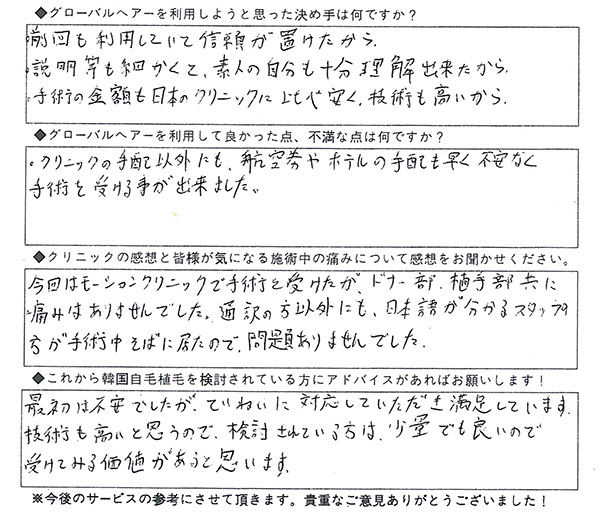 ◆グローバルヘアーを利用しようと思った決め手は何ですか?
・前回も利用していて信頼が置けたから.
・説明等も細かくて、素人の自分も十分理解出来たから.
・手術の金額も日本のクリニックに比べ安く、技術も高いから.
◆グローバルヘアーを利用して良かった点、不満な点は何ですか?
・クリニックの手配以外にも、航空券やホテルの手配も早く不安なく
手術を受ける事が出来ました。
◆クリニックの感想と皆様が気になる施術中の痛みについて感想をお聞かせください。
今回はモーションクリニックで手術を受けたが、ドナー部、植手部共に
痛みはありませんでした。通訳の方以外にも、日本語が分かるスタッフの
方が手術中そばに居たので、問題ありませんでした.
◆これから韓国自毛植毛を検討されている方にアドバイスがあればお願いします!
最初は不安でしたが、ていねいに対応していただき満足しています.
技術も高いと思うので、検討されている方は、少量でも良いので
受けてみる価値があると思います.
※今後のサービスの参考にさせて頂きます。貴重なご意見ありがとうございました!